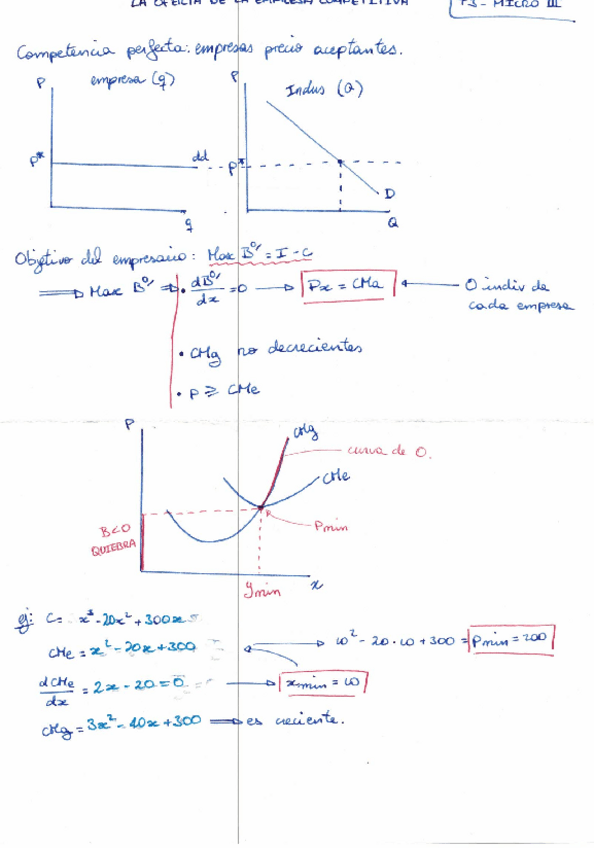 LA OFERTA DE LA EMPRESA COMPETITIVA
T3 - MICRO III
Competencia perfecta: empresas precio aceptantes.
P empresa (q)
P Indus (Q)
P* dd
P*
D
q
Q
Objetivo del empresario: Max Bº/ = I - C
⟹ Max Bº/ ⟹ • dBº/ / dx = 0 → Px = CMa ← O indiv de
cada empresa
• CMg no decrecientes
• P ≥ CMe
P
CMg
curva de O.
CMe
B<0
QUIEBRA
Pmin
x
ymin
ej: C = x³ - 20x² + 300x
CMe = x² - 20x + 300 ⟷ 10² - 20·10 + 300 = Pmin = 200
dCMe / dx = 2x - 20 = 0 → xmin = 10
CMg = 3x² - 40x + 300 ⟹ es creciente.